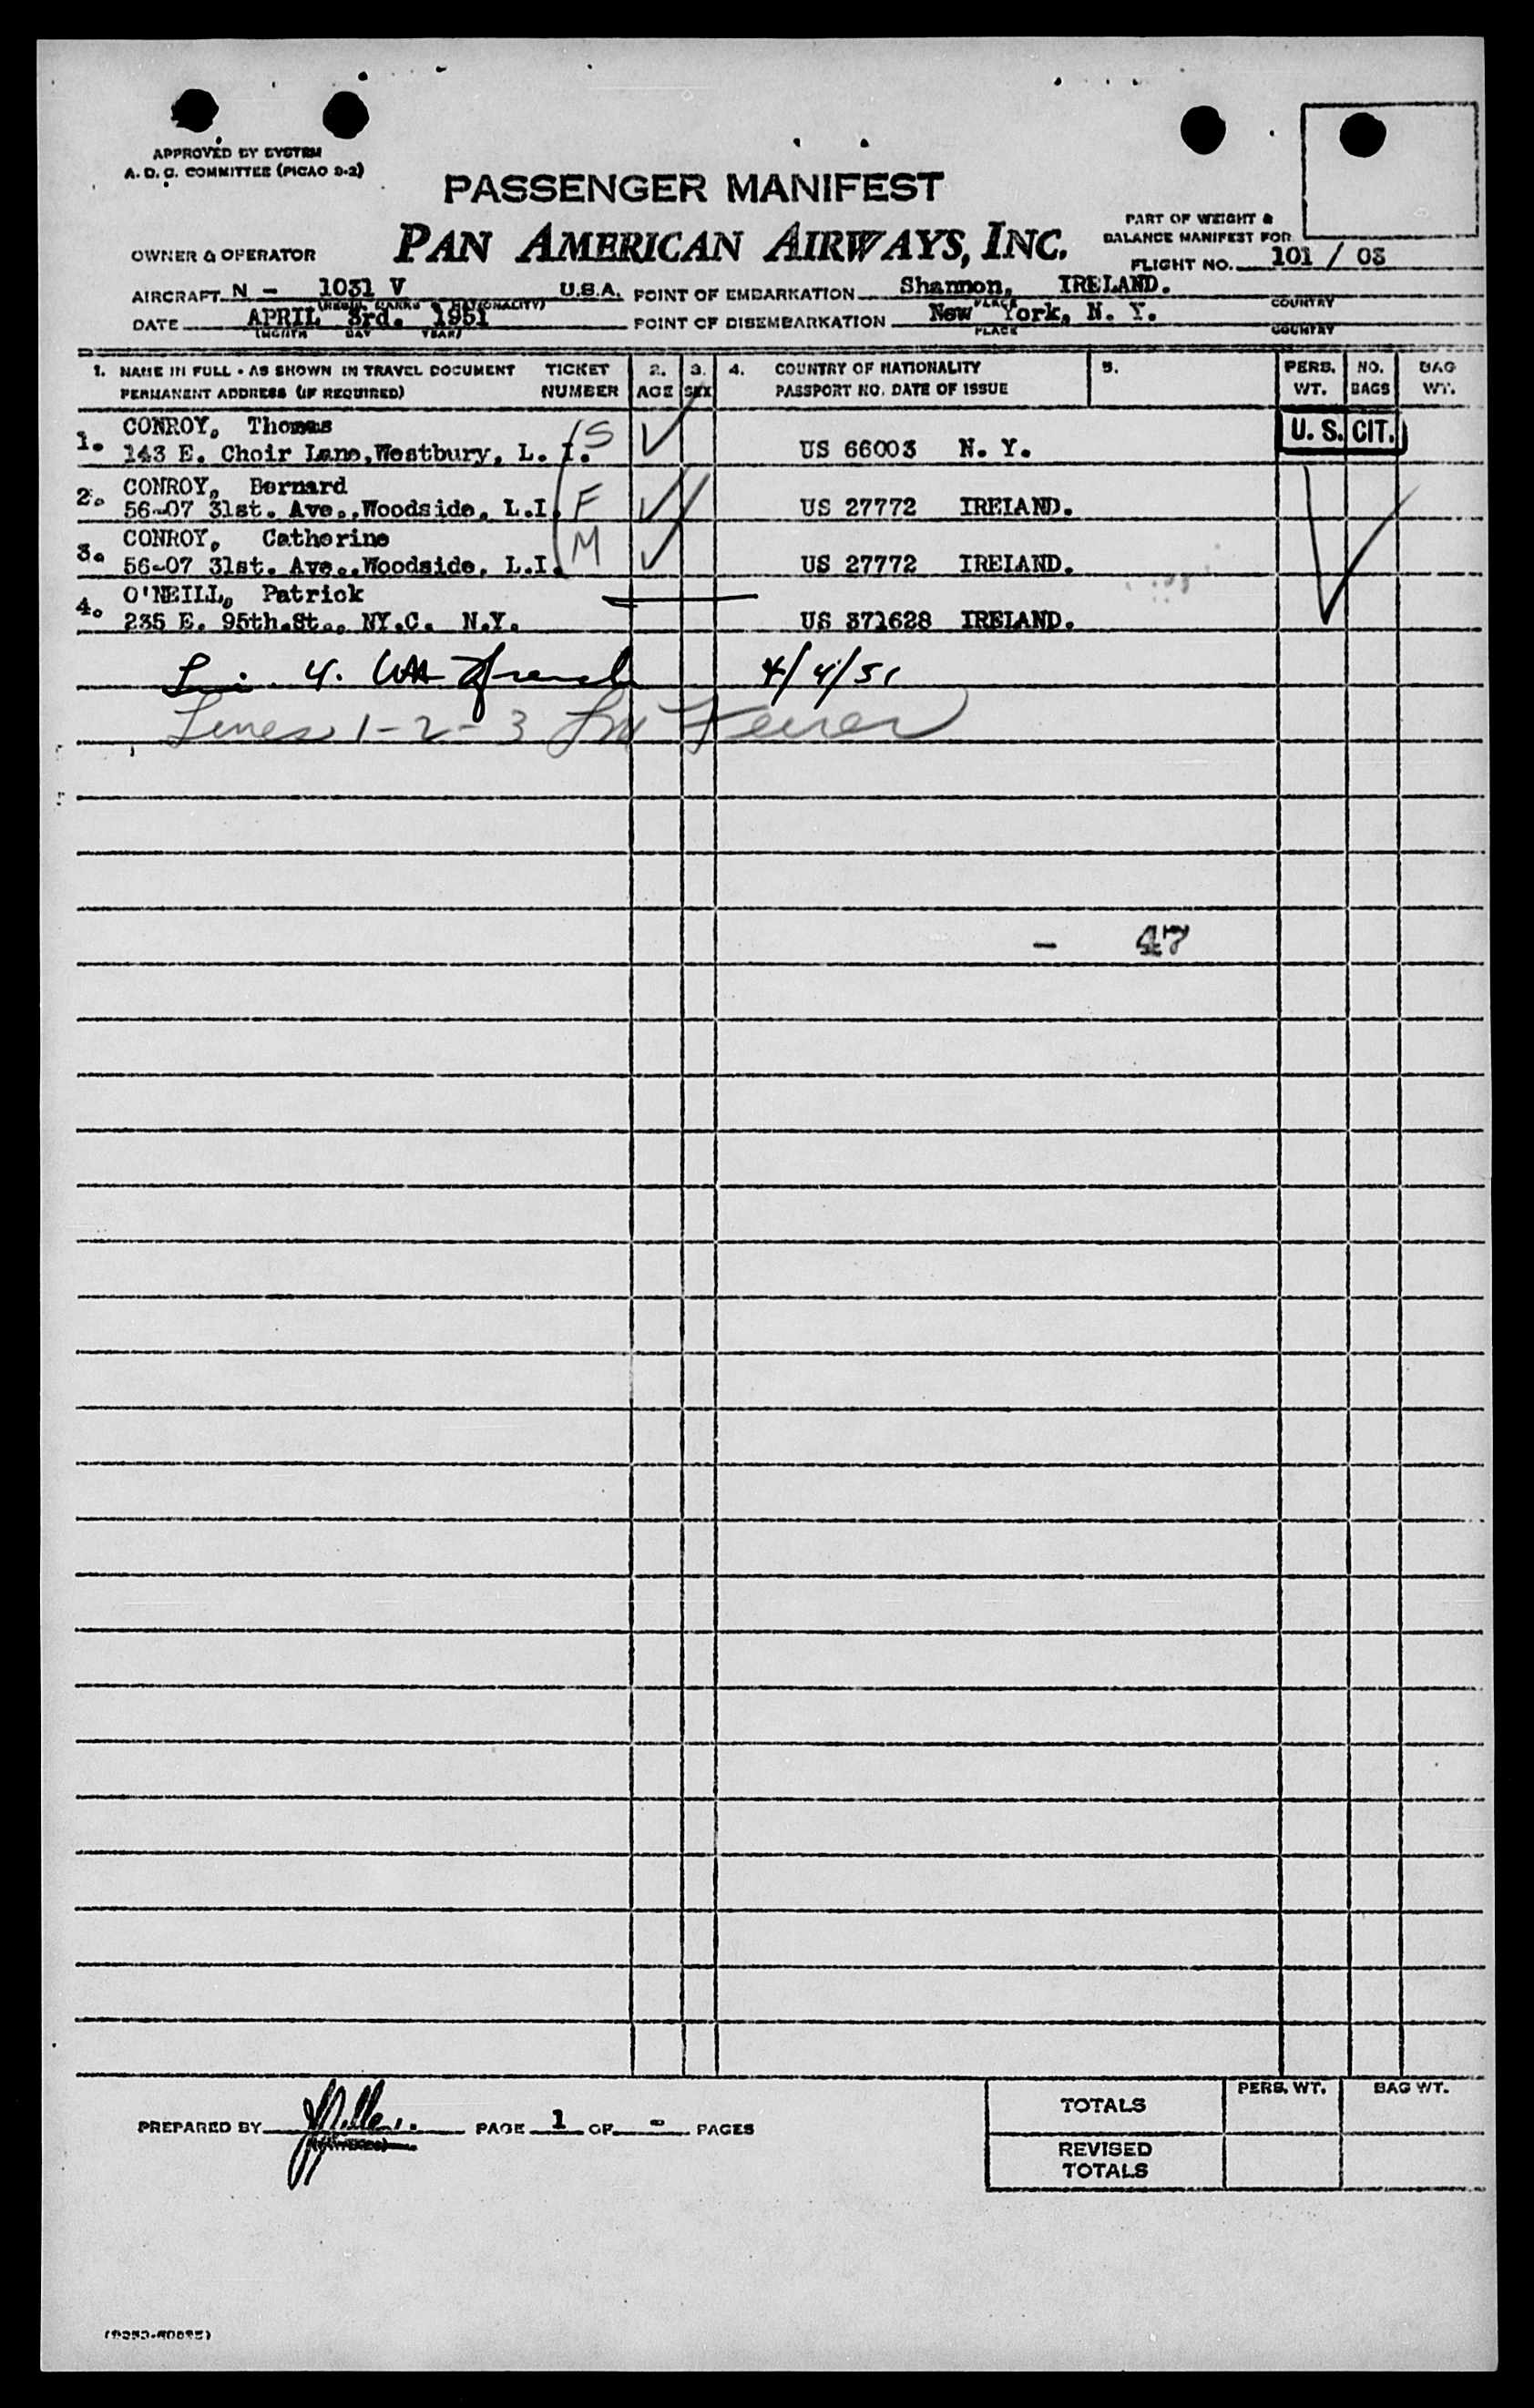 APPROVED BY SYSTEM
A. D. C. COMMITTEE (PICAO 9-2)
PASSENGER MANIFEST
PAN AMERICAN AIRWAYS, INC.
OWNER & OPERATOR
PART OF WEIGHT &
BALANCE MANIFEST FOR
FLIGHT NO. 101 / 03
AIRCRAFT N - 1031 V U.S.A. POINT OF EMBARKATION Shannon, IRELAND.
(REGIS. MARKS & NATIONALITY) PLACE COUNTRY
DATE APRIL 3rd. 1951 POINT OF DISEMBARKATION New York, N. Y.
(MONTH DAY YEAR) PLACE COUNTRY
1. NAME IN FULL - AS SHOWN IN TRAVEL DOCUMENT TICKET 2. 3. 4. COUNTRY OF NATIONALITY 5. PERS. NO. BAG
PERMANENT ADDRESS (IF REQUIRED) NUMBER AGE SEX PASSPORT NO. DATE OF ISSUE WT. BAGS WT.
CONROY, Thomas
1. 143 E. Choir Lane, Westbury, L. I. S US 66003 N. Y. U. S. CIT.
CONROY, Bernard
2. 56-07 31st. Ave., Woodside, L.I. F US 27772 IRELAND.
CONROY, Catherine
3. 56-07 31st. Ave., Woodside, L.I. M US 27772 IRELAND.
O'NEILL, Patrick
4. 235 E. 95th.St., NY.C. N.Y. US 371628 IRELAND.
4. 4/4/51
Lines 1-2-3
- 47
PREPARED BY PAGE 1 OF - PAGES
TOTALS PERS. WT. BAG WT.
REVISED
TOTALS